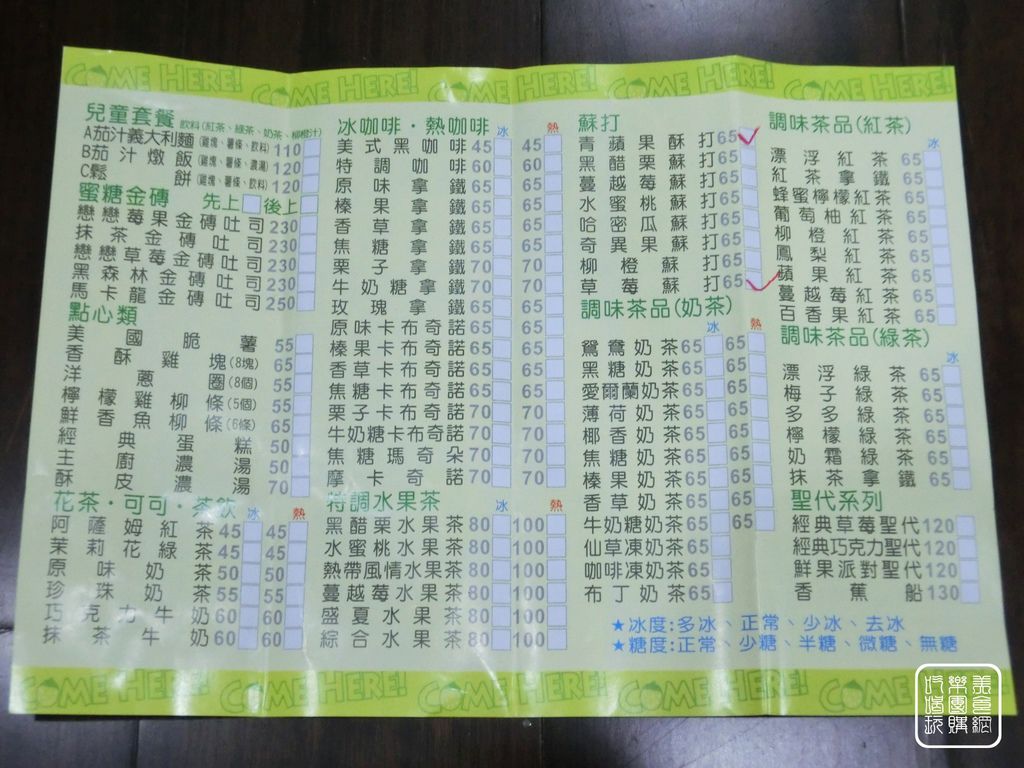 COME HERE! COME HERE! COME HERE! COME HERE! COME HERE!
兒童套餐 飲料(紅茶、綠茶、奶茶、柳橙汁)
A茄汁義大利麵(雞塊、薯條、飲料)110
B茄汁燉飯(雞塊、薯條、濃湯)120
C鬆餅(雞塊、薯條、飲料)120
蜜糖金磚 先上 後上
戀戀莓果金磚吐司230
抹茶金磚吐司230
戀戀草莓金磚吐司230
黑森林金磚吐司230
馬卡龍金磚吐司250
點心類
美國脆薯55
香酥雞塊(8塊)65
洋蔥圈(8個)55
檸檬雞柳條(5個)55
鮮香魚柳條(6條)65
經典蛋糕50
主廚濃湯50
酥皮濃湯70
花茶·可可·茶飲 冰 熱
阿薩姆紅茶45 45
茉莉花綠茶45 45
原味奶茶50 50
珍珠奶茶55 55
巧克力牛奶60 60
抹茶牛奶60 60
冰咖啡·熱咖啡 冰 熱
美式黑咖啡45 45
特調咖啡60 60
原味拿鐵60 60
榛果拿鐵65 65
香草拿鐵65 65
焦糖拿鐵65 65
栗子拿鐵70 70
牛奶糖拿鐵70 70
玫瑰拿鐵65 65
原味卡布奇諾65 65
榛果卡布奇諾65 65
香草卡布奇諾65 65
焦糖卡布奇諾65 65
栗子卡布奇諾70 70
牛奶糖卡布奇諾70 70
焦糖瑪奇朵70 70
摩卡奇諾70 70
特調水果茶 冰 熱
黑醋栗水果茶80 100
水蜜桃水果茶80 100
熱帶風情水果茶80 100
蔓越莓水果茶80 100
盛夏水果茶80 100
綜合水果茶80 100
蘇打
青蘋果酥打65
黑醋栗蘇打65
蔓越莓蘇打65
水蜜桃蘇打65
哈密瓜蘇打65
奇異果蘇打65
柳橙蘇打65
草莓蘇打65
調味茶品(奶茶)
冰 熱
鴛鴦奶茶65 65
黑糖奶茶65 65
愛爾蘭奶茶65 65
薄荷奶茶65 65
椰香奶茶65 65
焦糖奶茶65 65
榛果奶茶65 65
香草奶茶65 65
牛奶糖奶茶65 65
仙草凍奶茶65
咖啡凍奶茶65
布丁奶茶65
調味茶品(紅茶)
冰
漂浮紅茶65
紅茶拿鐵65
蜂蜜檸檬紅茶65
葡萄柚紅茶65
柳橙紅茶65
鳳梨紅茶65
蘋果紅茶65
蔓越莓紅茶65
百香果紅茶65
調味茶品(綠茶)
冰
漂浮綠茶65
梅子綠茶65
多多綠茶65
檸檬綠茶65
奶霜綠茶65
抹茶拿鐵65
聖代系列
經典草莓聖代120
經典巧克力聖代120
鮮果派對聖代120
香蕉船130
★冰度:多冰、正常、少冰、去冰
★糖度:正常、少糖、半糖、微糖、無糖
COME HERE! COME HERE! COME HERE! COME HERE! COME HERE!